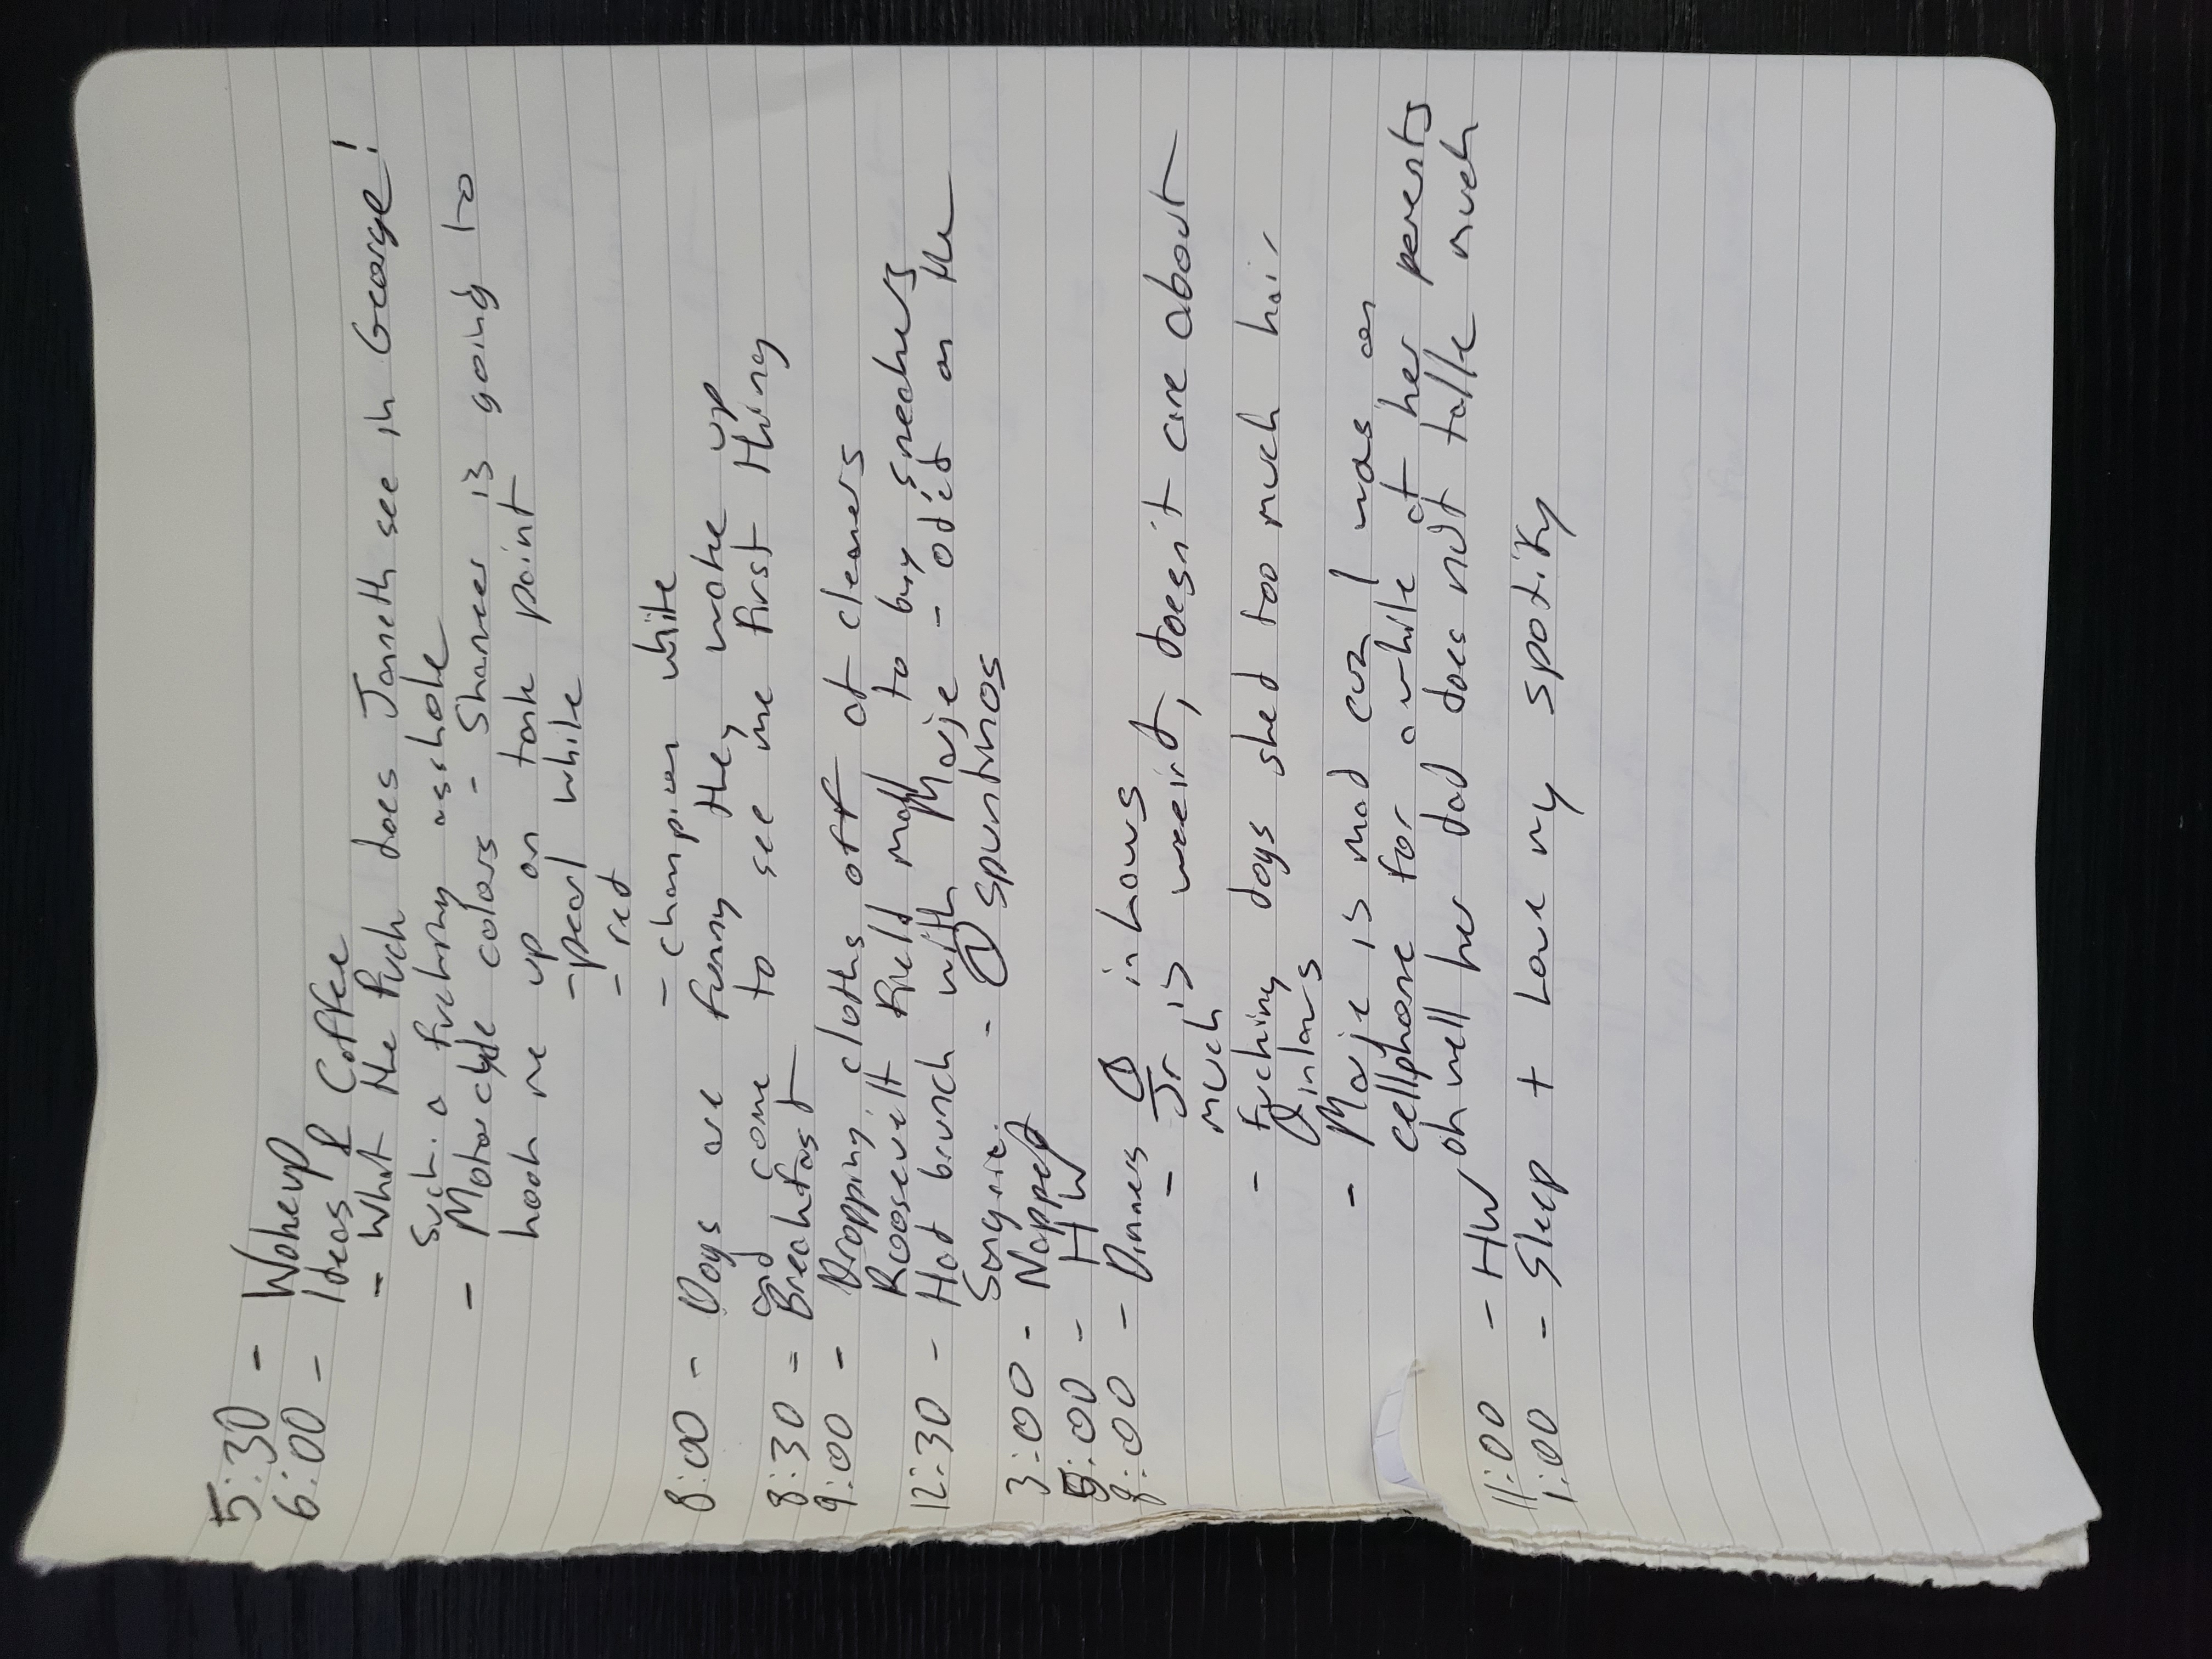 5:30 - Wakeup
6:00 - Ideas & Coffee
- What the fuck does Janneth see in George!
such a fucking asshole
- Motorcycle colors - is going to
hook me up on tank paint
- pearl white
- red
- champion white
8:00 - Dogs are funny they wake up
and come to see me first thing
8:30 - Breakfast
9:00 - Dropping cloths off at cleaners
Roosevelt Field mall to buy sneakers
12:30 - Had brunch with Marje - od'ed on the
- @ spuntinos
3:00 - Napped
5:00 - HW
8:00 - Dinners @ inlaws
- Jr is weird, doesn't care about
much
- fucking dogs shed too much hair
@inlaws
- Marje is mad cuz I was on
cellphone for awhile at her parents
oh well her dad does not talk much
11:00 - HW
1:00 - Sleep + Love my spotify